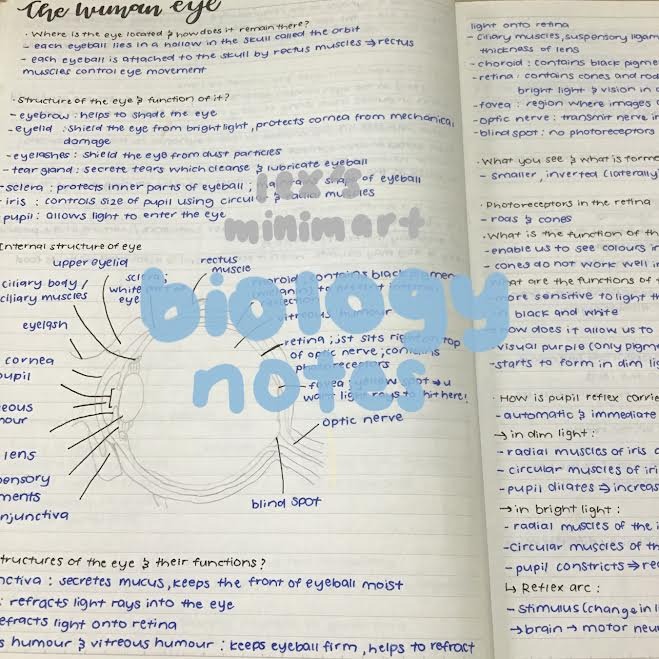 The human eye
· Where is the eye located & how does it remain there?
- each eyeball lies in a hollow in the skull called the orbit
- each eyeball is attached to the skull by rectus muscles ⇒ rectus
muscles control eye movement
· Structure of the eye & function of it?
- eyebrow : helps to shade the eye
- eyelid : shield the eye from bright light, protects cornea from mechanical
damage
- eyelashes : shield the eye from dust particles
- tear gland : secrete tears which cleanse & lubricate eyeball
- sclera : protects inner parts of eyeball ; of eyeball
- iris : controls size of pupil using & muscles
pupil : allows light to enter the eye
minimart
Internal structure of eye
upper eyelid
rectus
muscle
ciliary body /
ciliary muscles
white
eye
eyelash
cornea
pupil
lens
optic nerve
blind spot
contains black
vitreous humour
retina ; jst sits right on top
of optic nerve ; contains
photoreceptors
fovea : yellow spot → u
want light rays to hit here!
biology
notes
structures of the eye & their functions?
: secretes mucus, keeps the front of eyeball moist
: refracts light rays into the eye
refracts light onto retina
humour & vitreous humour : keeps eyeball firm, helps to refract
light onto retina
- ciliary muscles, suspensory
thickness of lens
- choroid : contains black
- retina : contains cones and
bright light & vision in
- fovea : region where images
- optic nerve : transmit nerve
- blind spot : no photoreceptors
· What you see & what is
- smaller, inverted (laterally
· Photoreceptors in the retina
- rods & cones
· What is the function of
- enable us to see colours
- cones do not work well
What are the functions of
more sensitive to light
black and white
How does it allow us to
visual purple (only
- starts to form in dim
· How is pupil reflex
- automatic & immediate
→ in dim light :
- radial muscles of iris
- circular muscles of
- pupil dilates ⇒
→ in bright light :
- radial muscles of the
- circular muscles of
- pupil constricts ⇒
↳ Reflex arc :
- stimulus (change in
→ brain → motor